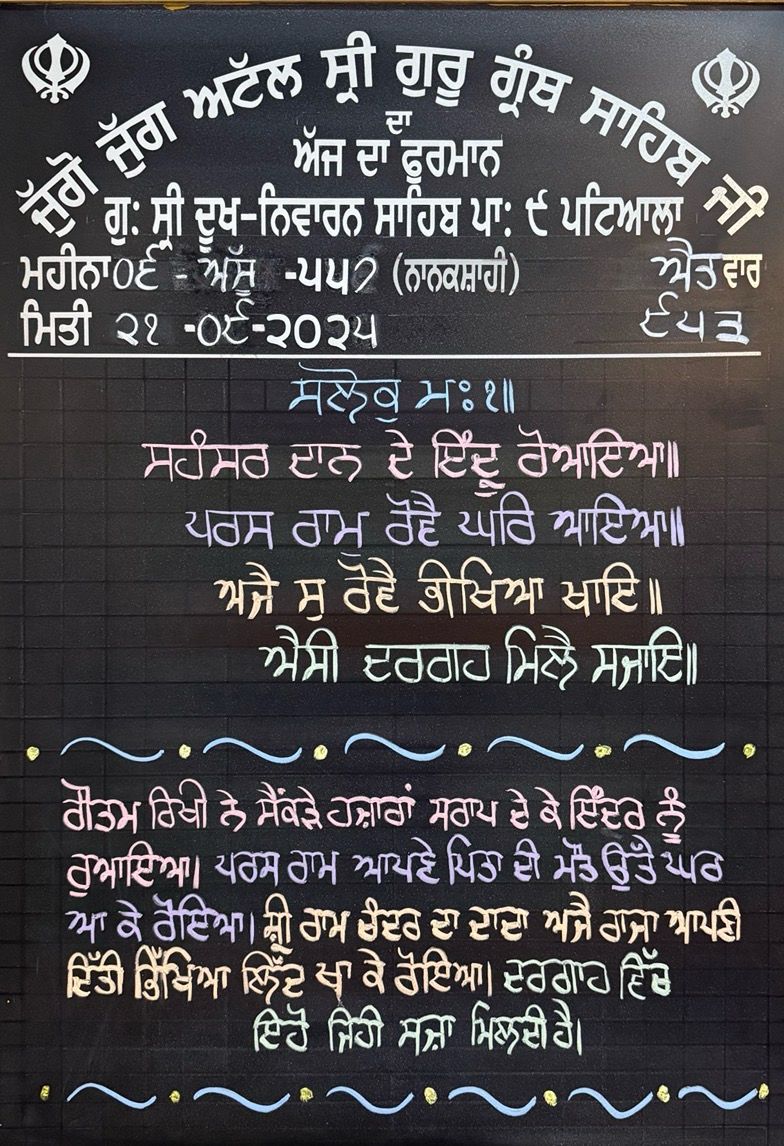 ਜੁੱਗੋ ਜੁੱਗ ਅਟੱਲ ਸ੍ਰੀ ਗੁਰੂ ਗ੍ਰੰਥ ਸਾਹਿਬ ਜੀ
ਦਾ
ਅੱਜ ਦਾ ਫੁਰਮਾਨ
ਗੁ: ਸ੍ਰੀ ਦੂਖ-ਨਿਵਾਰਨ ਸਾਹਿਬ ਪਾ: ੯ ਪਟਿਆਲਾ
ਮਹੀਨਾ ੦੬ - ਅੱਸੂ -੫੫੭ (ਨਾਨਕਸ਼ਾਹੀ) ਐਤਵਾਰ
ਮਿਤੀ ੨੧ -੦੯-੨੦੨੫ ੯੫੩
ਸਲੋਕੁ ਮਃ ੧॥
ਸਹੰਸਰ ਦਾਨ ਦੇ ਇੰਦ੍ਰੁ ਰੋਆਇਆ॥
ਪਰਸ ਰਾਮੁ ਰੋਵੈ ਘਰਿ ਆਇਆ॥
ਅਜੈ ਸੁ ਰੋਵੈ ਭੀਖਿਆ ਖਾਇ॥
ਐਸੀ ਦਰਗਹ ਮਿਲੈ ਸਜਾਇ॥
ਗੌਤਮ ਰਿਖੀ ਨੇ ਸੈਂਕੜੇ ਹਜ਼ਾਰਾਂ ਸਰਾਪ ਦੇ ਕੇ ਇੰਦਰ ਨੂੰ
ਰੁਆਇਆ। ਪਰਸ ਰਾਮ ਆਪਣੇ ਪਿਤਾ ਦੀ ਮੌਤ ਉਤੇ ਘਰ
ਆ ਕੇ ਰੋਇਆ। ਸ਼੍ਰੀ ਰਾਮ ਚੰਦਰ ਦਾ ਦਾਦਾ ਅਜੈ ਰਾਜਾ ਆਪਣੀ
ਦਿੱਤੀ ਭਿੱਖਿਆ ਲਿੱਦ ਖਾ ਕੇ ਰੋਇਆ। ਦਰਗਾਹ ਵਿੱਚ
ਇਹੋ ਜਿਹੀ ਸਜ਼ਾ ਮਿਲਦੀ ਹੈ।